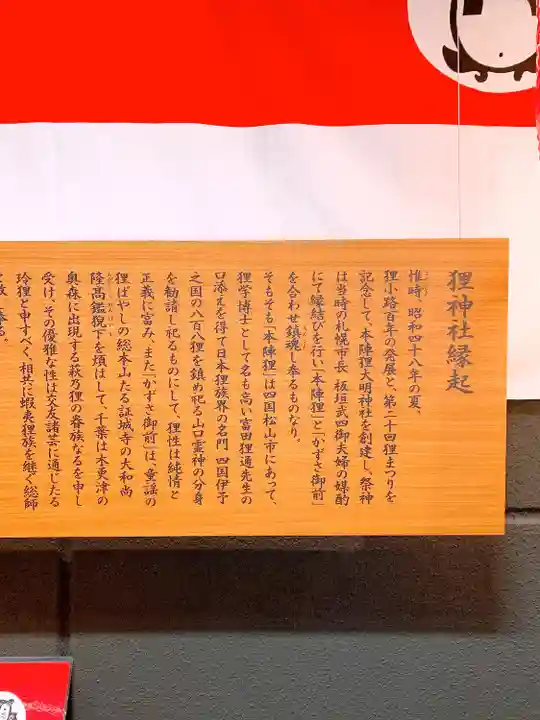 狸神社縁起
惟時、昭和四十八年の夏、
狸小路百年の発展と、第二十回狸まつりを
記念して、本陣狸大明神社を創建し、祭神
は当時の札幌市長 板垣武四御夫婦の媒酌
にて縁結びを行い「本陣狸」と「かずさ御前」
を合わせ鎮魂し奉るものなり。
そもそも「本陣狸」は四国松山市にあって、
狸学博士として名も高い富田狸通先生の
口添えを得て日本狸族界の名門 四国伊予
之国の八百八狸を鎮め祀る山口霊神の分身
を勧請し祀るものにして、狸性は純情と
正義に富み、また「かずさ御前」は、童謡の
狸ばやしの総本山たる証城寺の大和尚
隆高鑑猊下を煩はして、千葉は木更津の
奥森に出現する萩乃狸の眷族なるを申し
受け、その優雅な性は交友諸芸に通じたる
玲狸と申すべく、相共に蝦夷狸族を継ぐ総師
奉る。